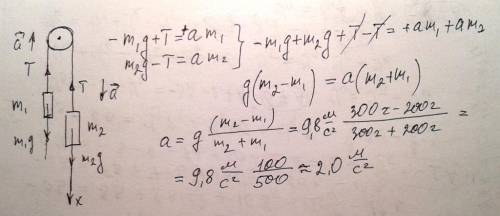 a⃗ ↑
T
m₁
m₁g
T
↓ a⃗
m₂
m₂g
x
-m₁g+T=+a m₁
m₂g-T=a m₂
} -m₁g+m₂g+T-T=+am₁+am₂
g(m₂-m₁)=a(m₂+m₁)
a=g (m₂-m₁)/(m₂+m₁)=9,8 м/с² (300г-200г)/(300г+200г)=
=9,8 м/с² 100/500≈2,0 м/с²